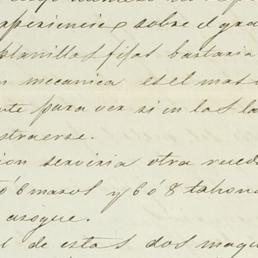 esperiencias sobre el gra
planillas fijas bastaria
n mecanica es el mas
nte para ver si en las la
straerse.
ion serviria otra rueda
ó 6 mazos y 6 ó 8 tahona
azogue.
l de estas dos maqu